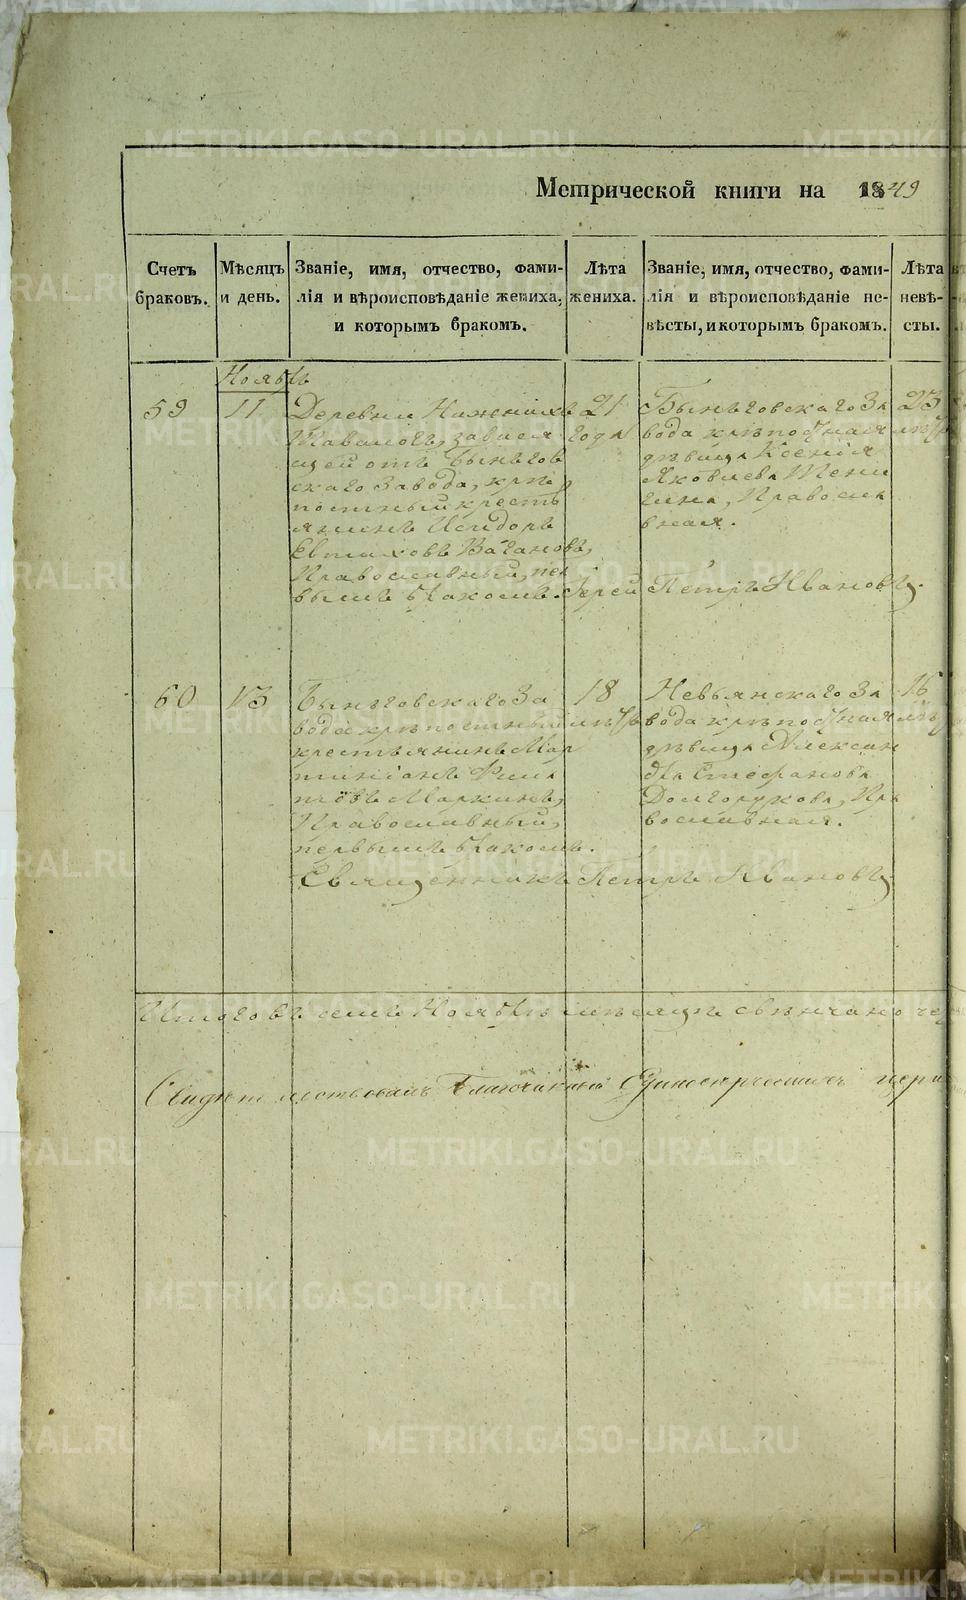 Метрической книги на 1849
Счетъ браковъ.
Мѣсяцъ и день.
Званіе, имя, отчество, фами-
лія и вѣроисповѣданіе жениха,
и которымъ бракомъ.
Лѣта
жениха.
Званіе, имя, отчество, фами-
лія и вѣроисповѣданіе не-
вѣсты, и которымъ бракомъ.
Лѣта
невѣ-
сты.
Ноябрь
59
11
Деревни Нижнихъ
Тавологъ, завися
щей отъ Бынгов
скаго Завода, крѣ
постный кресть
янинъ Исидоръ
Евтиховъ Ваганов,
Православный, пер
вымъ бракомъ.
21
года
Бынговскаго За
вода крѣпостная
дѣвица Ксенія
Яковлева
Правосла
вная.
23
Іерей Петръ Ивановъ.
60
13
Бынговскаго За
вода крѣпостный
крестьянинъ Мар
тиніанъ Фила
товъ Маркинъ,
Православный,
первымъ бракомъ.
18
лѣтъ
Невьянскаго За
вода крѣпостная
дѣвица Алексан
дра Стефанова
Долгорукова, Пра
вославная.
16
Священникъ Петръ Ивановъ
Итого въ семъ Ноябрѣ мѣсяцѣ свѣнчано че
Свидѣтельствовалъ Благочинный Единоверческихъ церк
METRIKI.GASO-URAL.RU